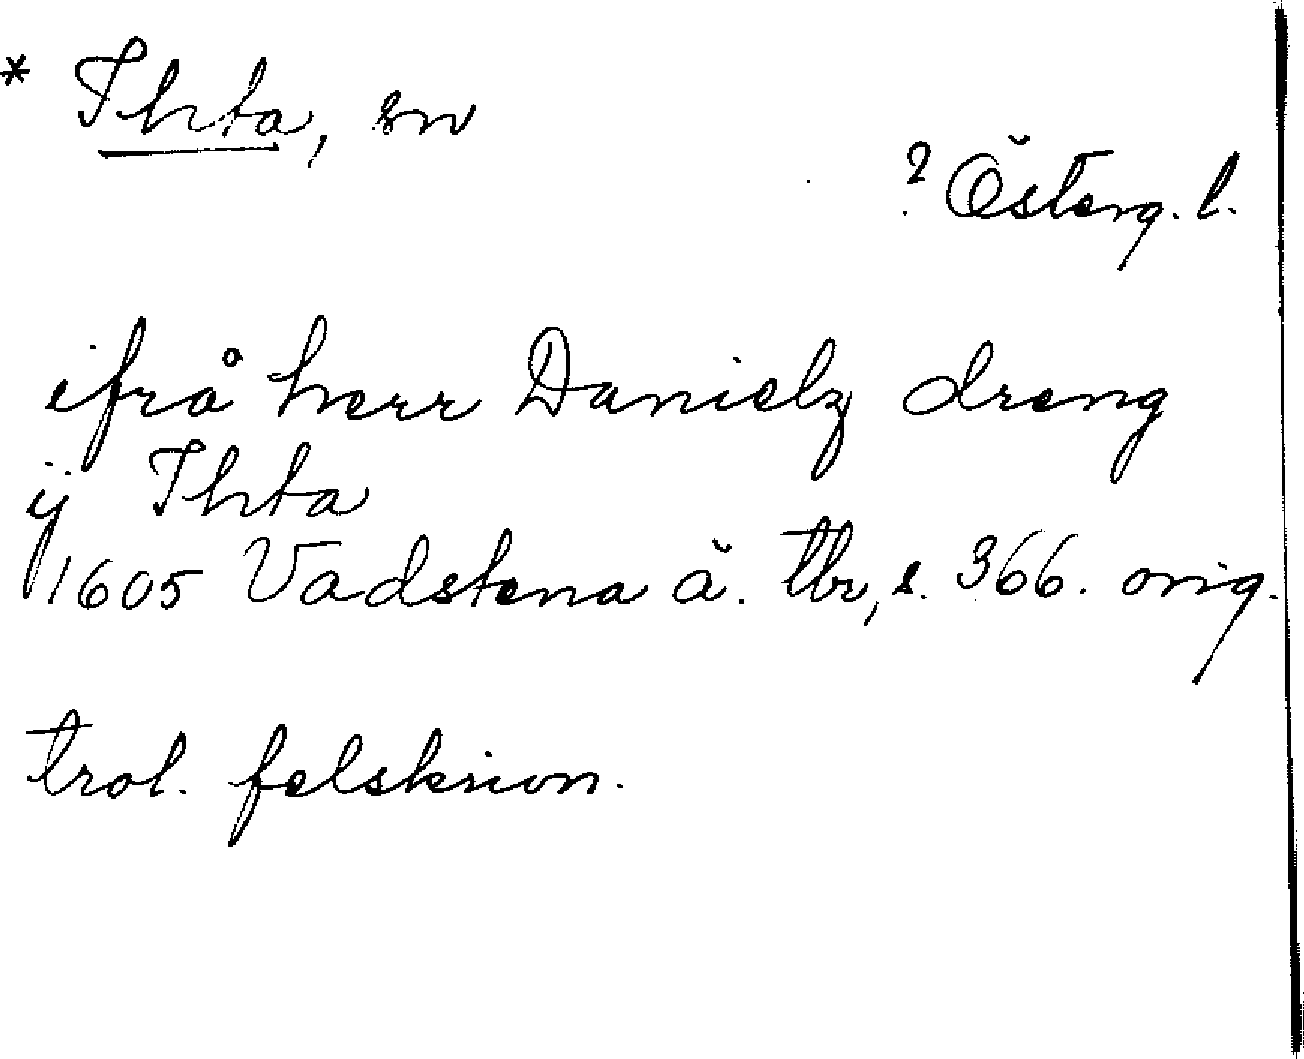 * Ihta, sn
? Österg. l.
ifrå herr Danielz dreng
ÿ Ihta
1605 Vadstena ä. tbr, s. 366. orig.
trol. felskrivn.